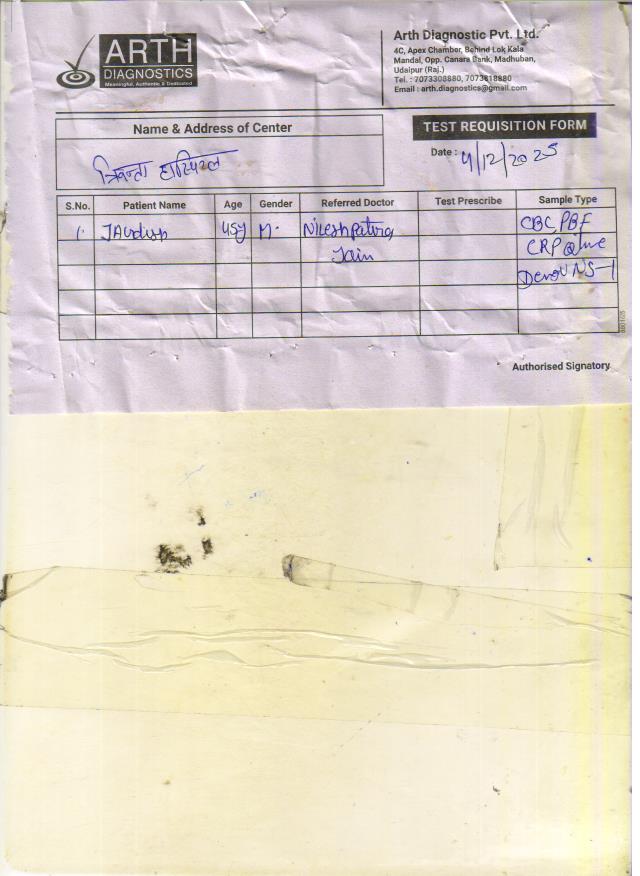 ARTH
DIAGNOSTICS
Meaningful, Authentic & Dedicated
Arth Diagnostic Pvt. Ltd.
4C, Apex Chamber, Behind Lok Kala
Mandal, Opp. Canara Bank, Madhuban,
Udaipur (Raj.)
Tel. : 7073308880, 7073618880
Email : arth.diagnostics@gmail.com
Name & Address of Center
हास्पिटल
TEST REQUISITION FORM
Date : 4/12/2025
S.No. Patient Name Age Gender Referred Doctor Test Prescribe Sample Type
1. 45y M. Nilesh CBC, PBF
Jain CRP
NS-1
Authorised Signatory